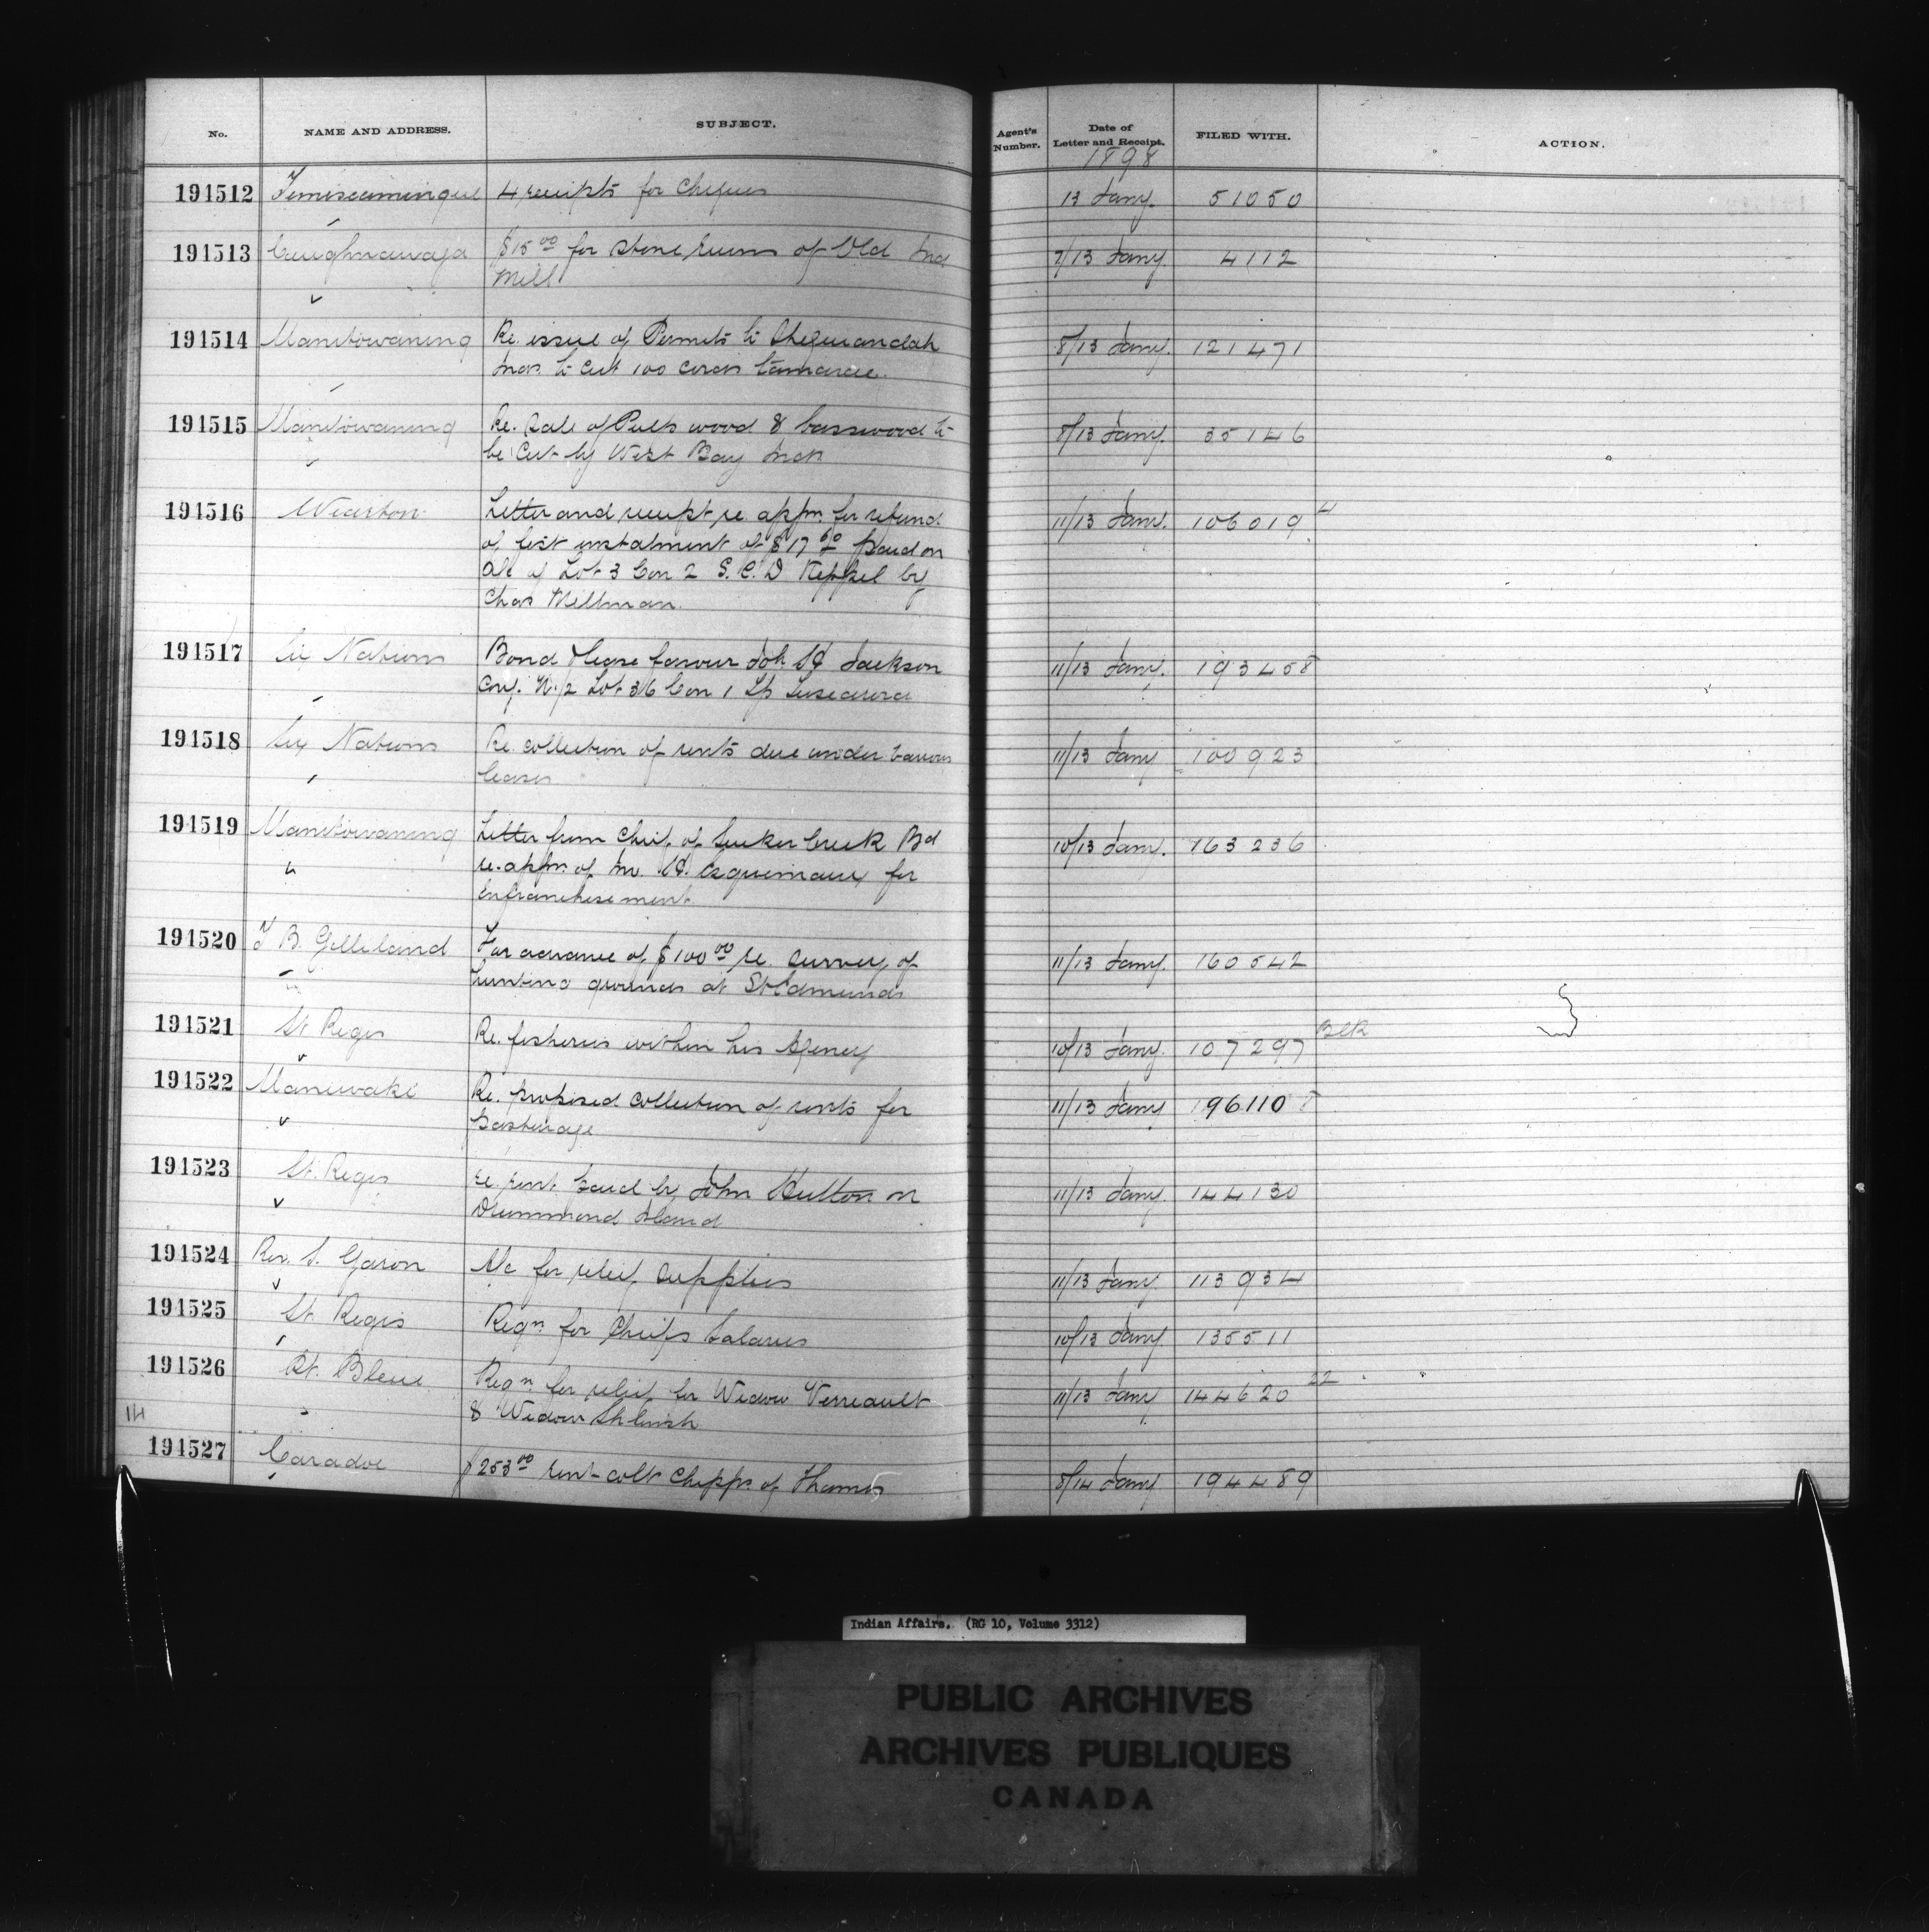 No. NAME AND ADDRESS. SUBJECT. Agent's Number. Date of Letter and Receipt. FILED WITH. ACTION.
1898
191512 Temiscamingue 4 receipts for cheques 13 Jany. 51050
191513 Caughnawaga $15.00 for stone ruins of Old Ind 7/13 Jany. 4112
Mill
191514 Manitowaning Re. issue of Permits to Sheguiandah 8/13 Jany. 121471
Inds. to cut 100 cords tamarac.
191515 Manitowaning Re. Sale of Pulp wood & basswood to 8/13 Jany. 35146
be cut by West Bay Inds
191516 Wiarton Letter and receipt re. appn. for refund 11/13 Jany. 106019 4
of first instalment of $17 paid on
a/c of Lot 3 Con 2 S.C.D Keppel by
Chas Millman.
191517 Six Nations Bond & lease favour Joh. Jackson 11/13 Jany. 193458
N. 1/2 Lot 36 Con 1 Tp Tuscarora
191518 Six Nations Re. collection of rents due under various 11/13 Jany 100923
leases
191519 Manitowaning Letter from Chief of Sucker Creek Bd 10/13 Jany. 163236
re. appn. of Esquimaux for
enfranchisement.
191520 T B. Gilleland For advance of $100.00 re. survey of 11/13 Jany. 160542
hunting grounds at St Edmunds
191521 St Regis Re. fisheries within his Agency 10/13 Jany. 107297 Blk
191522 Maniwaki Re. proposed collection of rents for 11/13 Jany 196110
pasturage
191523 St. Regis re. rent paid by John Hutton on 11/13 Jany. 144130
Drummond Island
191524 Rev. S. Garon A/c for relief supplies 11/13 Jany. 113934
191525 St Regis Reqn. for Chiefs Salaries 10/13 Jany. 135511
191526 Pt. Bleue Reqn. for relief for Widow Verreault 11/13 Jany 144620 22
14 & Widow
191527 Caradoc $253.00 rent colln Chipps. of Thames 8/14 Jany 194489
Indian Affairs. (RG 10, Volume 3312)
PUBLIC ARCHIVES
ARCHIVES PUBLIQUES
CANADA